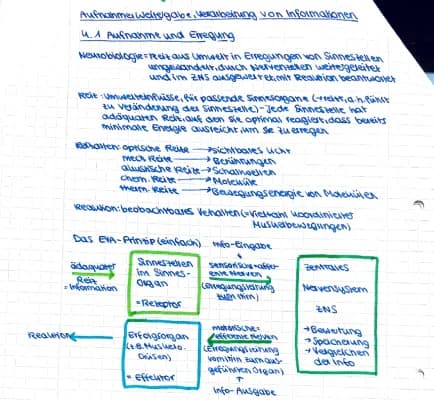 Aufnahme, Weitergabe, Verarbeitung von Informationen
4.1 Aufnahme und Erregung
Neurobiologie = Reiz aus Umwelt in Erregungen von Sinneszellen
umgewandelt, durch Nervenzellen weitergeleitet
und im ZNS ausgewertet, mit Reaktion beantwortet
Reiz: Umwelteinflüsse, für passende Sinnesorgane
zu Veränderung der Sinneszelle) - Jede Sinneszelle hat
adäquaten Reiz, auf den sie optimal reagiert, dass bereits
minimale Energie ausreicht um sie zu erregen
optische Reize → sichtbares Licht
mech. Reize → Berührungen
akustische Reize → Schallwellen
chem. Reize → Moleküle
therm. Reize → Bewegungsenergie von Molekülen
Reaktion: beobachtbares Verhalten (= vielzahl koordinierter
Muskelbewegungen)
Das EVA-Prinzip (einfach)
Info-Eingabe
adäquater
Reiz
= Information
Sinneszellen
im Sinnes-
organ
= Rezeptor
sensorische = affer-
ente Nerven
(Erregungsleitung
zum Hirn)
Zentrales
Nervensystem
ZNS
→ Bewertung
→ Speicherung
→ Vergleichen
der Info
Reaktion
Erfolgsorgan
(z.B. Muskeln,
Drüsen)
= Effektor
motorische =
efferente Nerven
(Erregungsleitung
vom Hirn zum aus-
geführten Organ)
Info-Ausgabe